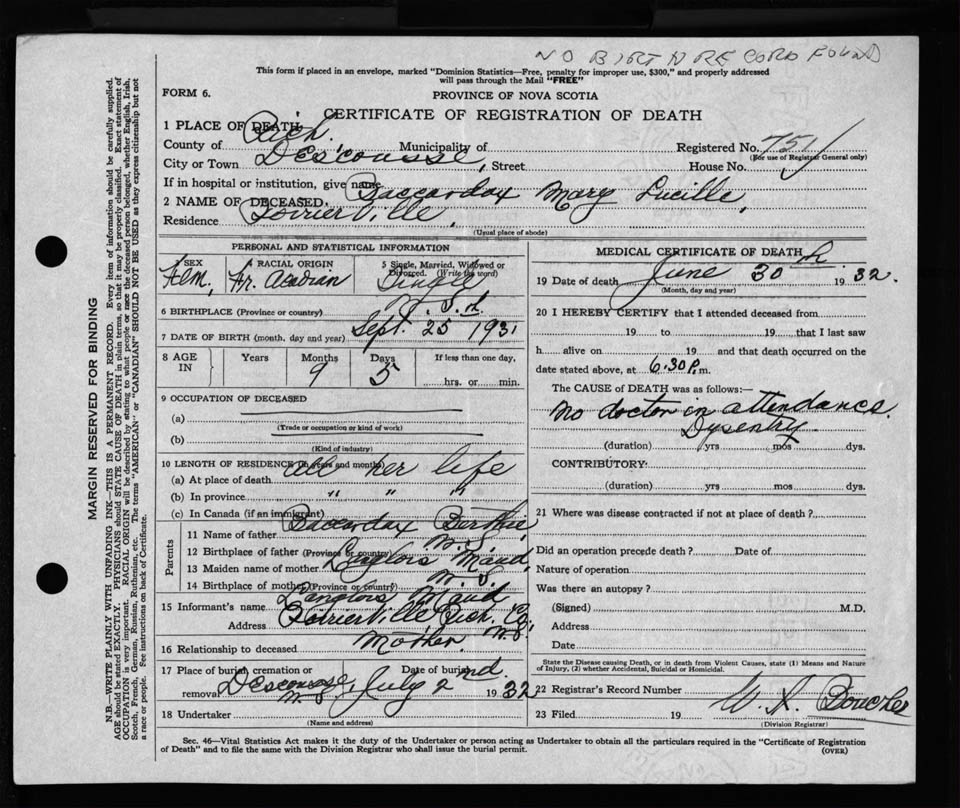 NO BIRTH RECORD FOUND
This form if placed in an envelope, marked "Dominion Statistics—Free, penalty for improper use, $300," and properly addressed
will pass through the Mail "FREE"
FORM 6.
PROVINCE OF NOVA SCOTIA
CERTIFICATE OF REGISTRATION OF DEATH
1 PLACE OF DEATH:
County of Rich. Municipality of Registered No. 751
(For use of Registrar General only)
City or Town Descousse, Street House No.
If in hospital or institution, give name
2 NAME OF DECEASED, Baccarday Mary Lucille,
Residence PoirierVille
(Usual place of abode)
PERSONAL AND STATISTICAL INFORMATION
3 SEX 4 RACIAL ORIGIN 5 Single, Married, Widowed or
Divorced. (Write the word)
Flm, Fr. Acadian Single
6 BIRTHPLACE (Province or country)
7 DATE OF BIRTH (month, day and year) Sept. 25 1931
8 AGE IN Years Months Days If less than one day,
9 5 hrs. or min.
9 OCCUPATION OF DECEASED
(a)
(Trade or occupation or kind of work)
(b)
(Kind of industry)
10 LENGTH OF RESIDENCE (in years and months)
(a) At place of death all her life
(b) In province " " "
(c) In Canada (if an immigrant)
Parents
11 Name of father Baccarday
12 Birthplace of father (Province or country) N.S.
13 Maiden name of mother Langlois Maud
14 Birthplace of mother (Province or country) N.S.
15 Informant's name Langlois Maud
Address PoirierVille Rich. Co. N.S.
16 Relationship to deceased Mother.
17 Place of burial, cremation or removal Date of burial
Descousse N.S. July 2nd. 1932
18 Undertaker
(Name and address)
MEDICAL CERTIFICATE OF DEATH
19 Date of death June 30th 1932.
(Month, day and year)
20 I HEREBY CERTIFY that I attended deceased from
19 to 19 that I last saw
h alive on 19 and that death occurred on the
date stated above, at 6.30 P. m.
The CAUSE OF DEATH was as follows:—
No doctor in attendance.
Dysentry
(duration) yrs mos dys.
CONTRIBUTORY:
(duration) yrs mos dys.
21 Where was disease contracted if not at place of death?
Did an operation precede death? Date of
Nature of operation
Was there an autopsy?
(Signed) M.D.
Address
Date
State the Disease causing Death, or in death from Violent Causes, state (1) Means and Nature
of Injury, (2) whether Accidental, Suicidal or Homicidal.
22 Registrar's Record Number
23 Filed 19 Boucher
(Division Registrar)
Sec. 46—Vital Statistics Act makes it the duty of the Undertaker or person acting as Undertaker to obtain all the particulars required in the "Certificate of Registration
of Death" and to file the same with the Division Registrar who shall issue the burial permit.
(OVER)
MARGIN RESERVED FOR BINDING
N.B.—WRITE PLAINLY WITH UNFADING INK—THIS IS A PERMANENT RECORD. Every item of information should be carefully supplied.
AGE should be stated EXACTLY. PHYSICIANS should STATE CAUSE OF DEATH in plain terms, so that it may be properly classified. Exact statement of
OCCUPATION is very important. RACIAL ORIGIN will be described by stating to what people or race the deceased person belonged, whether English, Irish,
Scotch, French, German, Russian, Ruthenian, etc. The terms "AMERICAN" or "CANADIAN" SHOULD NOT BE USED as they express citizenship but not
a race or people. See instructions on back of Certificate.